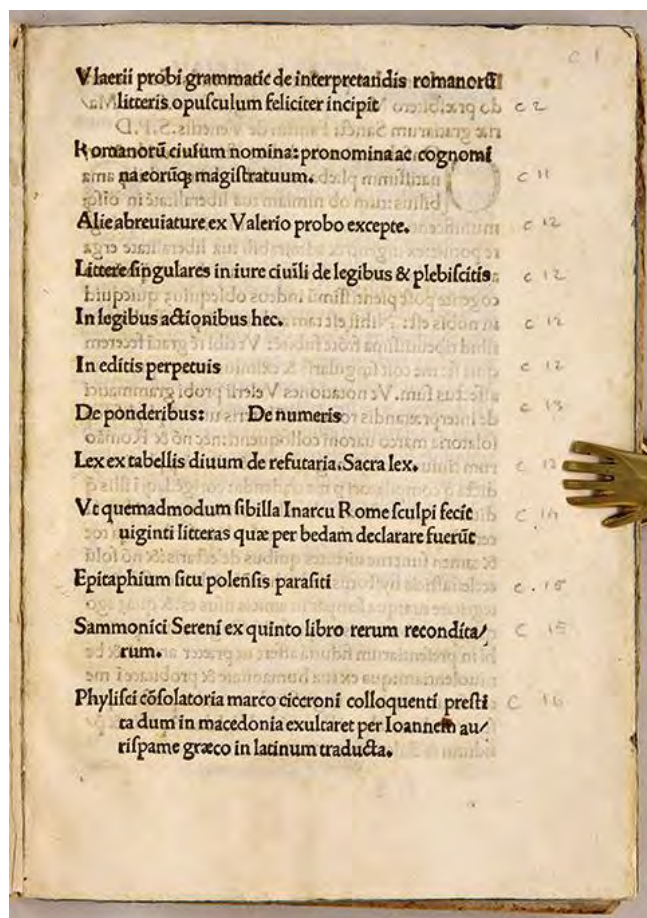 c 1
Vlaerii probi grammatic de interpretandis romanorū
litteris opusculum feliciter incipit c 2
Romanorū ciuium nomina: pronomina ac cognomi
na eorūq; magistratuum. c 11
Alie abreuiature ex Valerio probo excepte. c 12
Littere singulares in iure ciuili de legibus & plebiscitis c 12
In legibus actionibus hec. c 12
In editis perpetuis c 12
De ponderibus: De numeris c 13
Lex ex tabellis diuum de refutaria. Sacra lex. c 13
Vt quemadmodum sibilla Inarcu Rome sculpi fecit c 14
uiginti litteras quæ per bedam declarare fuerūt
Epitaphium situ polensis parasiti c. 15
Sammonici Sereni ex quinto libro rerum recondita/ c 15
rum.
Phylisci cōsolatoria marco ciceroni colloquenti presti c 16
ta dum in macedonia exultaret per Ioannem au/
rispame græco in latinum traducta.